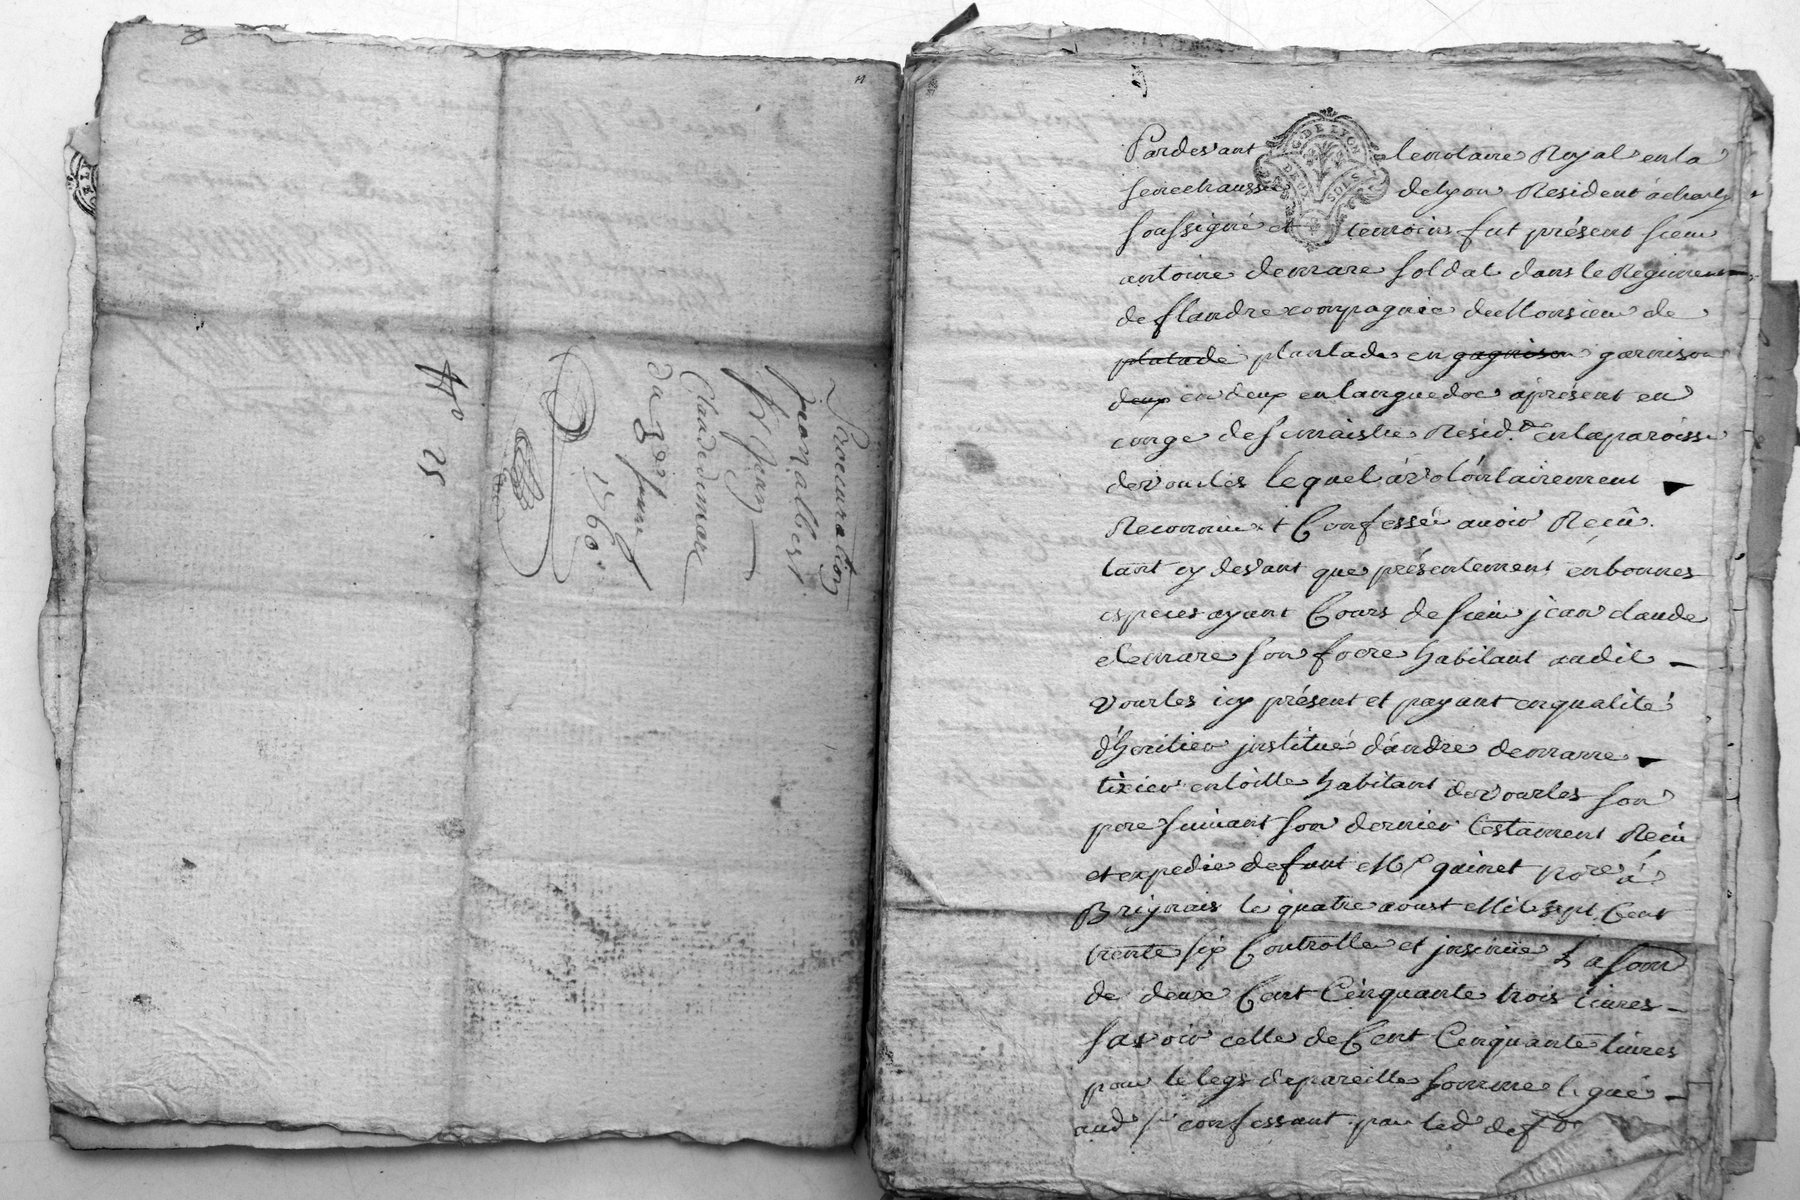 Procuration
jean albert
Sr Jean
Claude demare
du 3e janv
1760
No 25
Pardevant le notaire Royal en la
Senechaussée de lyon Resident a charly
soussigné et temoins fut présent sieur
antoine demare soldat dans le Regiment
de flandre compagnie de Monsieur de
platade plantade en gagnison garnison
deux en deux en languedoc àprésent en
conge de semaistre Resid.t en la paroisse
de vourles lequel à volontairement
Reconnu et Confessé avoir Reçû
tant cy devant que présentement en bonnes
especes ayant Cours de sieur jean claude
demare son frere habitant audit
vourles icy présent et payant en qualité
d'heritier institué d'andré demarre
tixier en toille habitant de vourles son
pere suivant son dernier testament Reçu
et expedie defunt Mr guinet nore à
Brignais le quatre aoust Mil sept Cent
trente six Controllé et insinué La som
de deux Cent Cinquante trois livres
savoir celle de Cent Cinquante livres
pour le legs de pareille somme legué
aud sr confessant par led def
G. DE LYON
DEUX SOLS